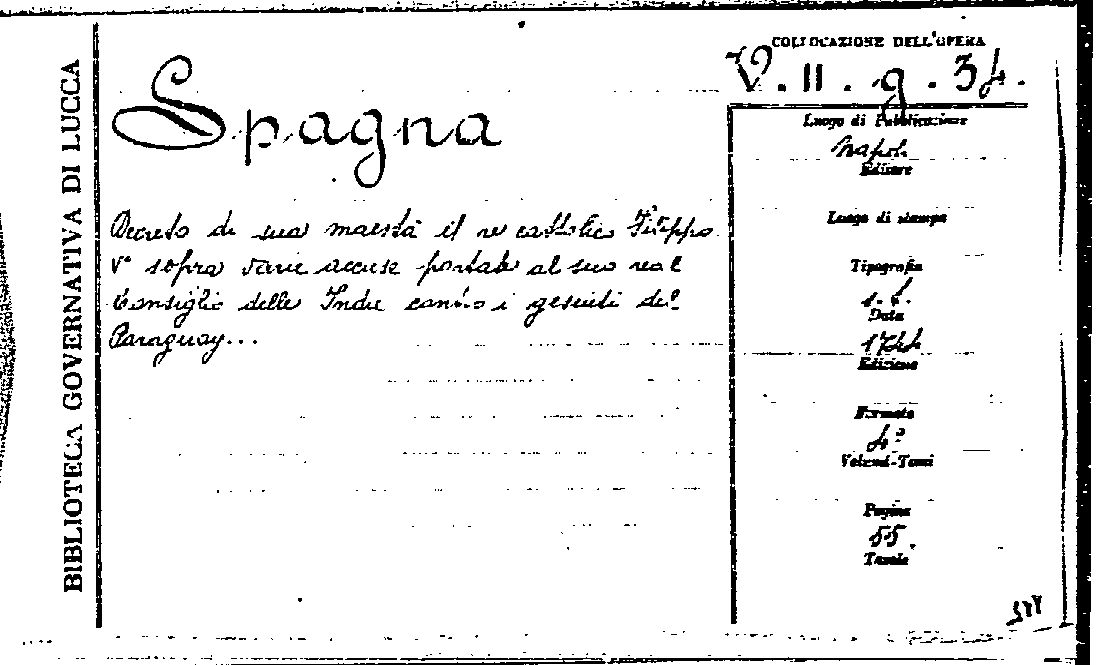 BIBLIOTECA GOVERNATIVA DI LUCCA
Spagna
Decreto di sua maestà il re cattolico Filippo
V° sopra varie accuse portate al suo real
Consiglio delle Indie contro i gesuiti del
Paraguay...
COLLOCAZIONE DELL'OPERA
V. II. g. 34.
Luogo di Pubblicazione
Napoli
Editore
Luogo di stampa
Tipografia
s. t.
Data
1744
Edizione
Formato
4°
Volumi-Tomi
Pagine
55.
Tavole